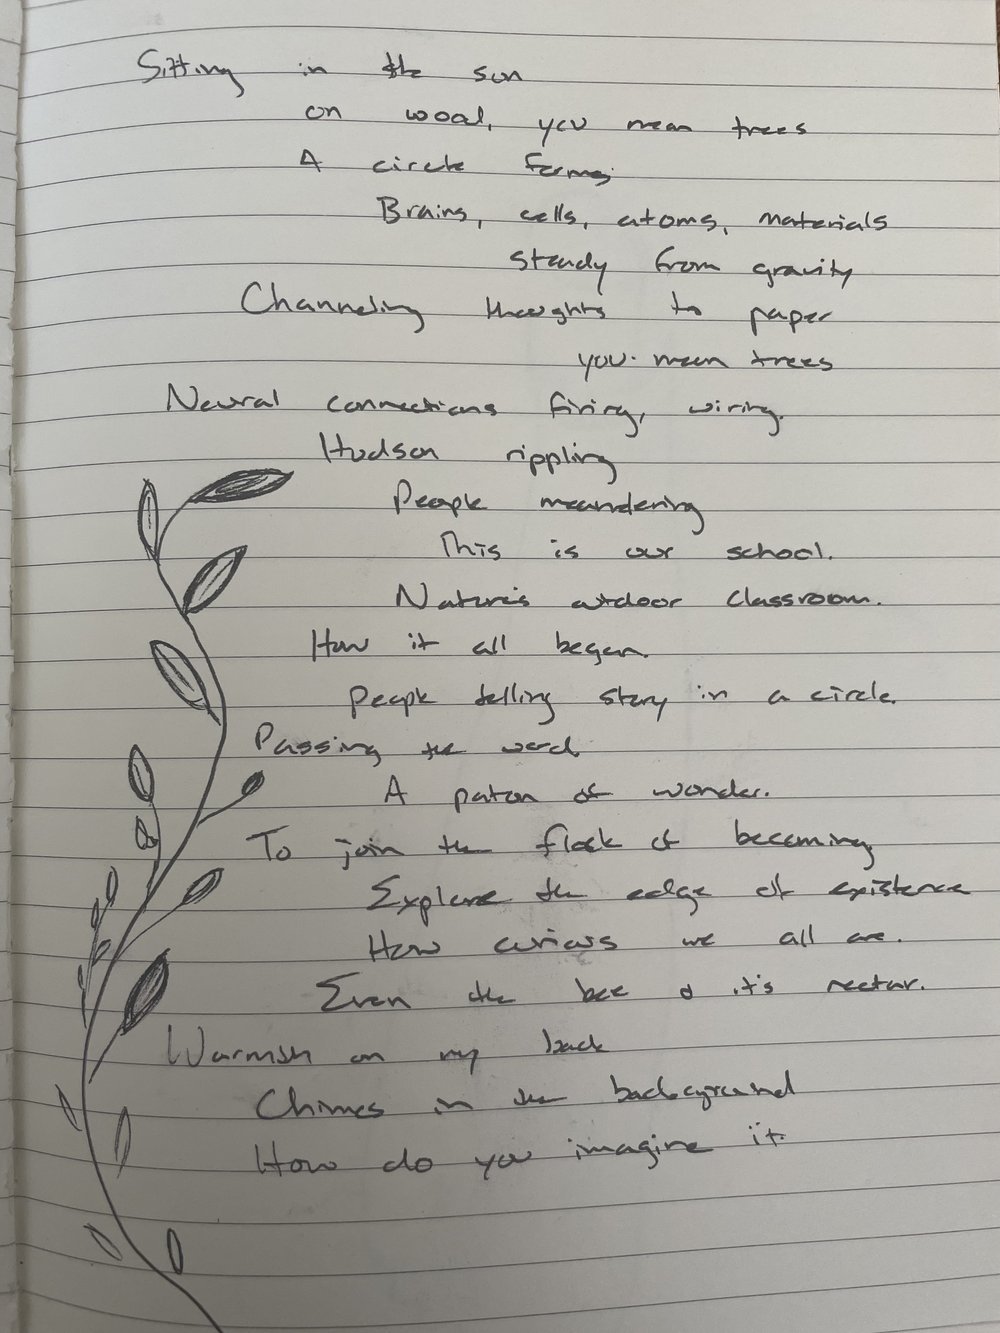 Sitting in the sun
on wood, you mean trees
A circle forms
Brains, cells, atoms, materials
steady from gravity
Channeling thoughts to paper
you mean trees
Neural connections firing, wiring.
Hudson rippling
People meandering
This is our school.
Nature's outdoor classroom.
How it all began.
People telling story in a circle.
Passing the word
A of wonder.
To join the flock of becoming
Explore the edge of existence
How curious we all are.
Even the bee & it's nectar.
Warmth on my back
Chimes in the background
How do you imagine it